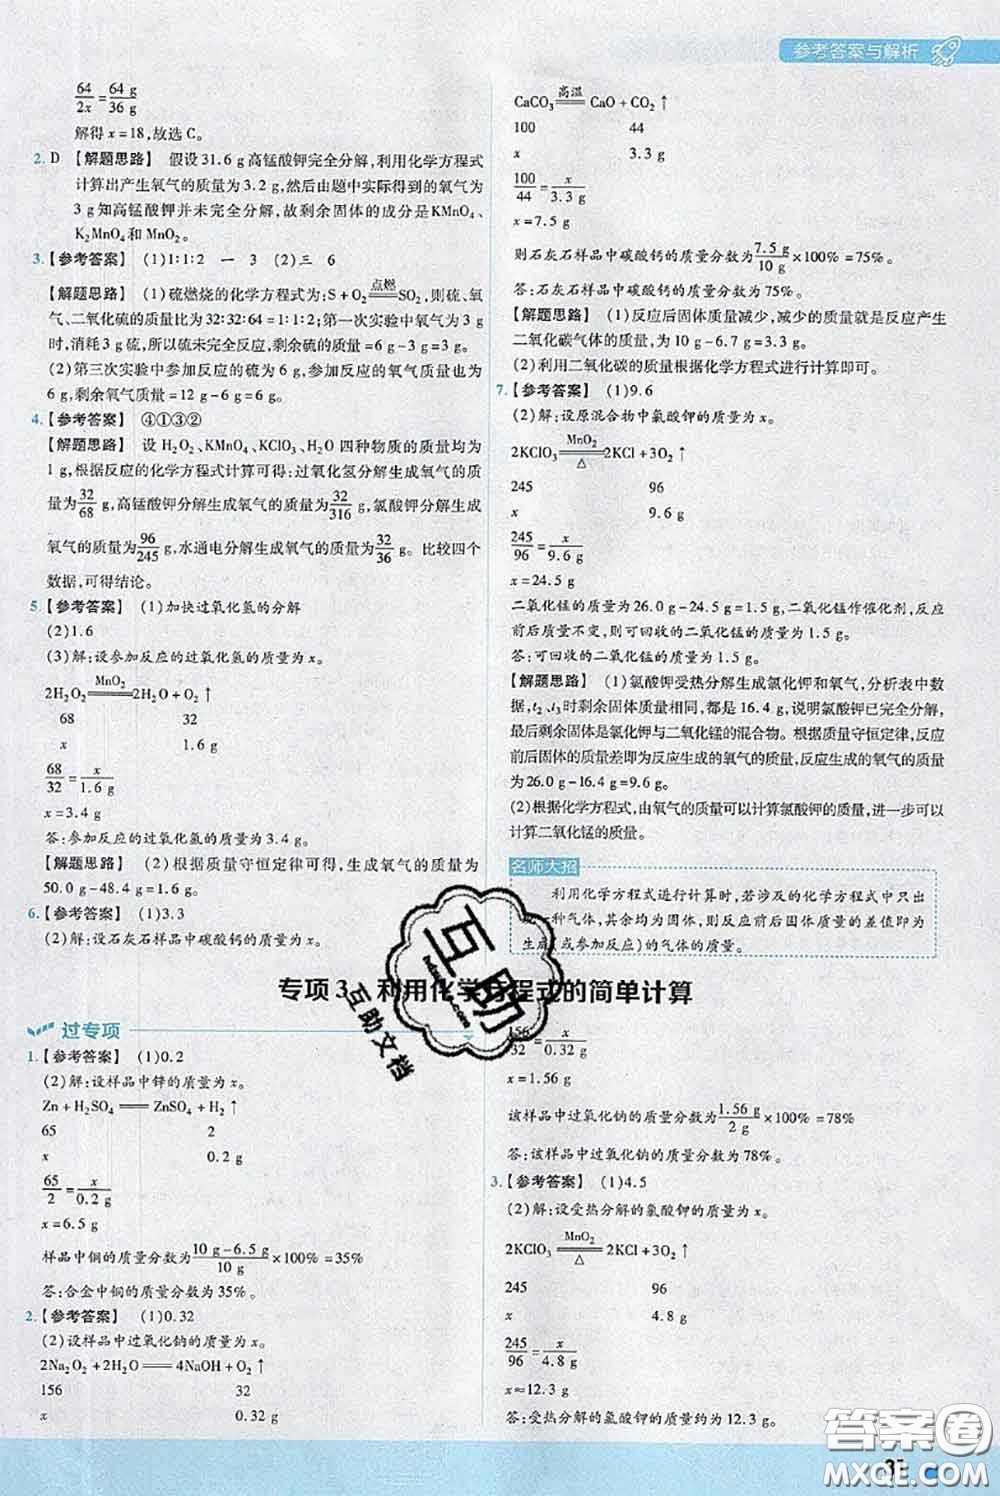 参考答案与解析
64/2x=64 g/36 g
解得 x=18,故选 C。
2. D 【解题思路】 假设 31.6 g 高锰酸钾完全分解,利用化学方程式
计算出产生氧气的质量为 3.2 g,然后由题中实际得到的氧气为
3 g 知高锰酸钾并未完全分解,故剩余固体的成分是 KMnO₄、
K₂MnO₄ 和 MnO₂。
3. 【参考答案】 (1)1∶1∶2 一 3 (2)三 6
【解题思路】 (1)硫燃烧的化学方程式为:S+O₂ 点燃 SO₂,则硫、氧
气、二氧化硫的质量比为 32∶32∶64=1∶1∶2;第一次实验中氧气为 3 g
时,消耗 3 g 硫,所以硫未完全反应,剩余硫的质量=6 g-3 g=3 g。
(2)第三次实验中参加反应的硫为 6 g,参加反应的氧气质量也为
6 g,剩余氧气质量=12 g-6 g=6 g。
4. 【参考答案】 ④①③②
【解题思路】 设 H₂O₂、KMnO₄、KClO₃、H₂O 四种物质的质量均为
1 g,根据反应的化学方程式计算可得:过氧化氢分解生成氧气的质
量为32/68 g,高锰酸钾分解生成氧气的质量为32/316 g,氯酸钾分解生成
氧气的质量为96/245 g,水通电分解生成氧气的质量为32/36 g。比较四个
数据,可得结论。
5. 【参考答案】 (1)加快过氧化氢的分解
(2)1.6
(3)解:设参加反应的过氧化氢的质量为 x。
2H₂O₂ MnO₂ 2H₂O+O₂↑
68 32
x 1.6 g
68/32=x/1.6 g
x=3.4 g
答:参加反应的过氧化氢的质量为 3.4 g。
【解题思路】 (2)根据质量守恒定律可得,生成氧气的质量为
50.0 g-48.4 g=1.6 g。
6. 【参考答案】 (1)3.3
(2)解:设石灰石样品中碳酸钙的质量为 x。
CaCO₃ 高温 CaO+CO₂↑
100 44
x 3.3 g
100/44=x/3.3 g
x=7.5 g
则石灰石样品中碳酸钙的质量分数为7.5 g/10 g×100%=75%。
答:石灰石样品中碳酸钙的质量分数为 75%。
【解题思路】 (1)反应后固体质量减少,减少的质量就是反应产生
二氧化碳气体的质量,为 10 g-6.7 g=3.3 g。
(2)利用二氧化碳的质量根据化学方程式进行计算即可。
7. 【参考答案】 (1)9.6
(2)解:设原混合物中氯酸钾的质量为 x。
2KClO₃ MnO₂ △ 2KCl+3O₂↑
245 96
x 9.6 g
245/96=x/9.6 g
x=24.5 g
二氧化锰的质量为 26.0 g-24.5 g=1.5 g,二氧化锰作催化剂,反应
前后质量不变,则可回收的二氧化锰的质量为 1.5 g。
答:可回收的二氧化锰的质量为 1.5 g。
【解题思路】 (1)氯酸钾受热分解生成氯化钾和氧气,分析表中数
据,t₂、t₃ 时剩余固体质量相同,都是 16.4 g,说明氯酸钾已完全分解,
最后剩余固体是氯化钾与二氧化锰的混合物。根据质量守恒定律,反应
前后固体的质量差即为反应生成的氧气的质量,反应生成的氧气的质量
为 26.0 g-16.4 g=9.6 g。
(2)根据化学方程式,由氧气的质量可以计算氯酸钾的质量,进一步可以
计算二氧化锰的质量。
名师大招
利用化学方程式进行计算时,若涉及的化学方程式中只出
一种气体,其余均为固体,则反应前后固体质量的差值即为
生成(或参加反应)的气体的质量。
专项 3 利用化学方程式的简单计算
过专项
1. 【参考答案】 (1)0.2
(2)解:设样品中锌的质量为 x。
Zn+H₂SO₄══ZnSO₄+H₂↑
65 2
x 0.2 g
65/2=x/0.2 g
x=6.5 g
样品中铜的质量分数为(10 g-6.5 g)/10 g×100%=35%
答:合金中铜的质量分数为 35%。
2. 【参考答案】 (1)0.32
(2)设样品中过氧化钠的质量为 x。
2Na₂O₂+2H₂O══4NaOH+O₂↑
156 32
x 0.32 g
156/32=x/0.32 g
x=1.56 g
该样品中过氧化钠的质量分数为1.56 g/2 g×100%=78%
答:该样品中过氧化钠的质量分数为 78%。
3. 【参考答案】 (1)4.5
(2)解:设受热分解的氯酸钾的质量为 x。
2KClO₃ MnO₂ △ 2KCl+3O₂↑
245 96
x 4.8 g
245/96=x/4.8 g
x≈12.3 g
答:受热分解的氯酸钾的质量约为 12.3 g。
互助
互助文档
答案卷
MXQE.COM